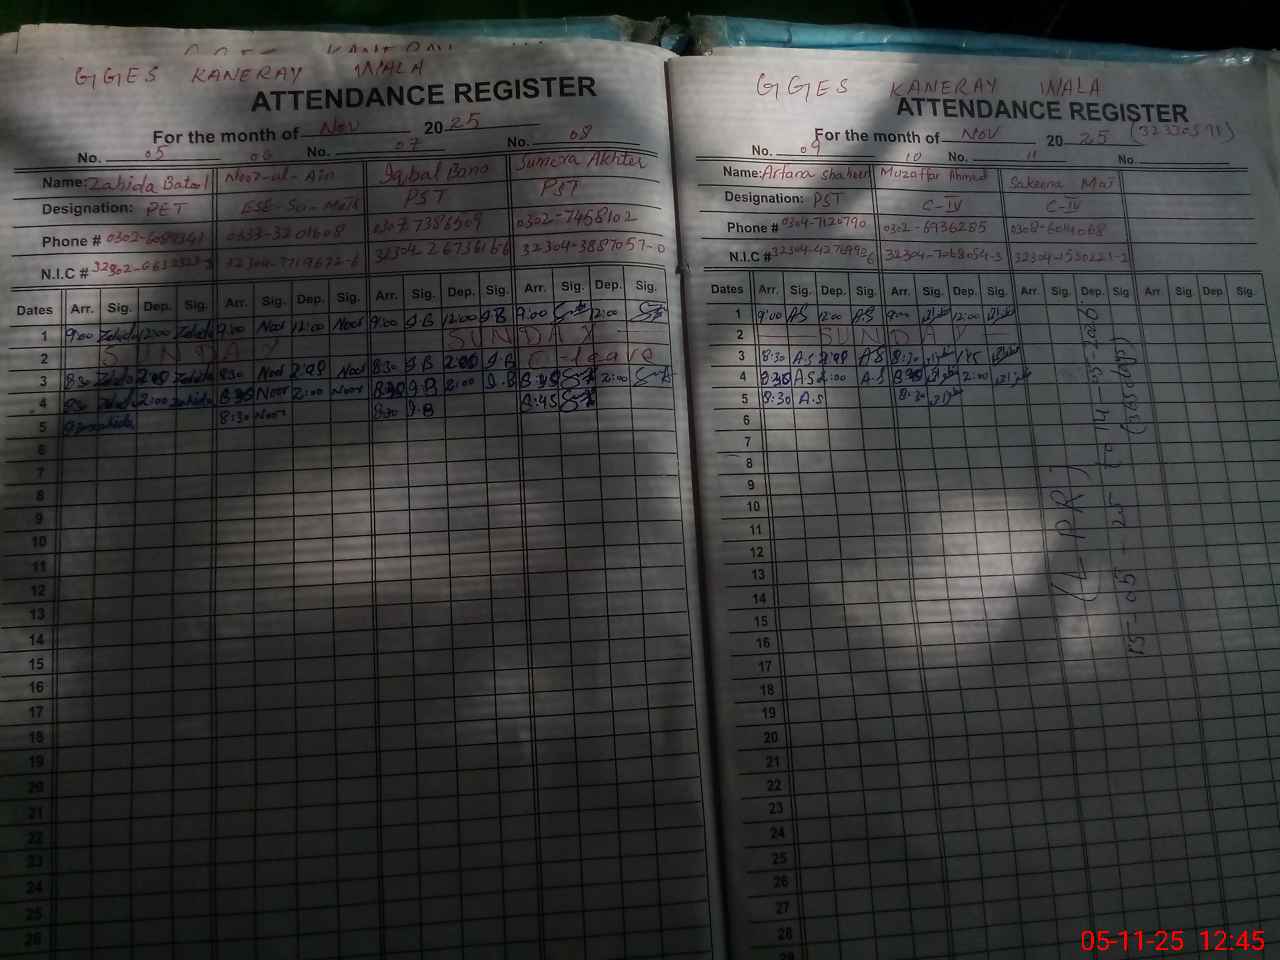 GGES KANERAY WALA
ATTENDANCE REGISTER
For the month of Nov 2025
No. 05 06 No. 07 No. 08
Name: Zahida Batool Noor-ul-Ain Iqbal Bano Sumera Akhter
Designation: PET ESE-Sci-Math PST PST
Phone # 0333-3201608 0307 7386509 0302-7458102
N.I.C # 32304-7719672-6 32304-3887057-0
Dates Arr. Sig. Dep. Sig. Arr. Sig. Dep. Sig. Arr. Sig. Dep. Sig. Arr. Sig. Dep. Sig.
1 9:00 Zahida 12:00 Zahida 9:00 Noor 12:00 Noor 9:00 I.B 12:00 I.B 9:00 12:00
2 SUNDAY SUNDAY
3 8:30 Zahida 2:00 Zahida 8:30 Noor 2:00 Noor 8:30 I.B 2:00 I.B C-leave
4 8:30 Zahida 2:00 Zahida 8:30 Noor 2:00 Noor 8:30 I.B 2:00 I.B 8:45 2:00
5 8:30 Zahida 8:30 Noor 8:30 I.B 8:45
6
7
8
9
10
11
12
13
14
15
16
17
18
19
20
21
22
23
24
25
26
GGES KANERAY WALA
ATTENDANCE REGISTER
For the month of Nov 2025 (32330598)
No. 09 10 No. 11 No.
Name: Afsana Shaheen Muzaffar Ahmed Sakeena Mai
Designation: PST C-IV C-IV
Phone # 0304-7120790 0302-6936285 0308-6014068
N.I.C # 32304-7068054-3 32304-1530221-2
Dates Arr. Sig. Dep. Sig. Arr. Sig. Dep. Sig. Arr. Sig. Dep. Sig. Arr. Sig. Dep Sig.
1 9:00 A.S 12:00 A.S 9:00 12:00
2 SUNDAY
3 8:30 A.S 2:00 A.S 8:30
4 8:30 A.S 2:00 A.S 8:30 2:00
5 8:30 A.S 8:30
6
7
8
9
10
11
12
13
14
15
16
17
18
19
20
21
22
23
24
25
26
27
28
(L PR)
15-05-2025 to 14-05-2026
(365 days)
05-11-25 12:45